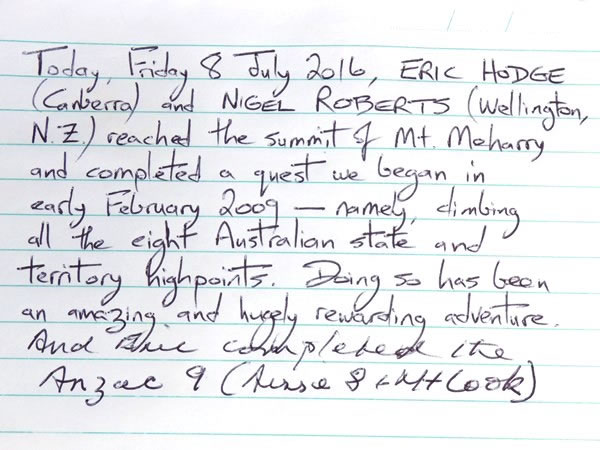 Today, Friday 8 July 2016, ERIC HODGE
(Canberra) and NIGEL ROBERTS (Wellington,
N.Z.) reached the summit of Mt. Meharry
and completed a quest we began in
early February 2009 — namely, climbing
all the eight Australian state and
territory highpoints. Doing so has been
an amazing and hugely rewarding adventure.
And Eric completed the
Anzac 9 (Aussie 8 + Mt Cook)